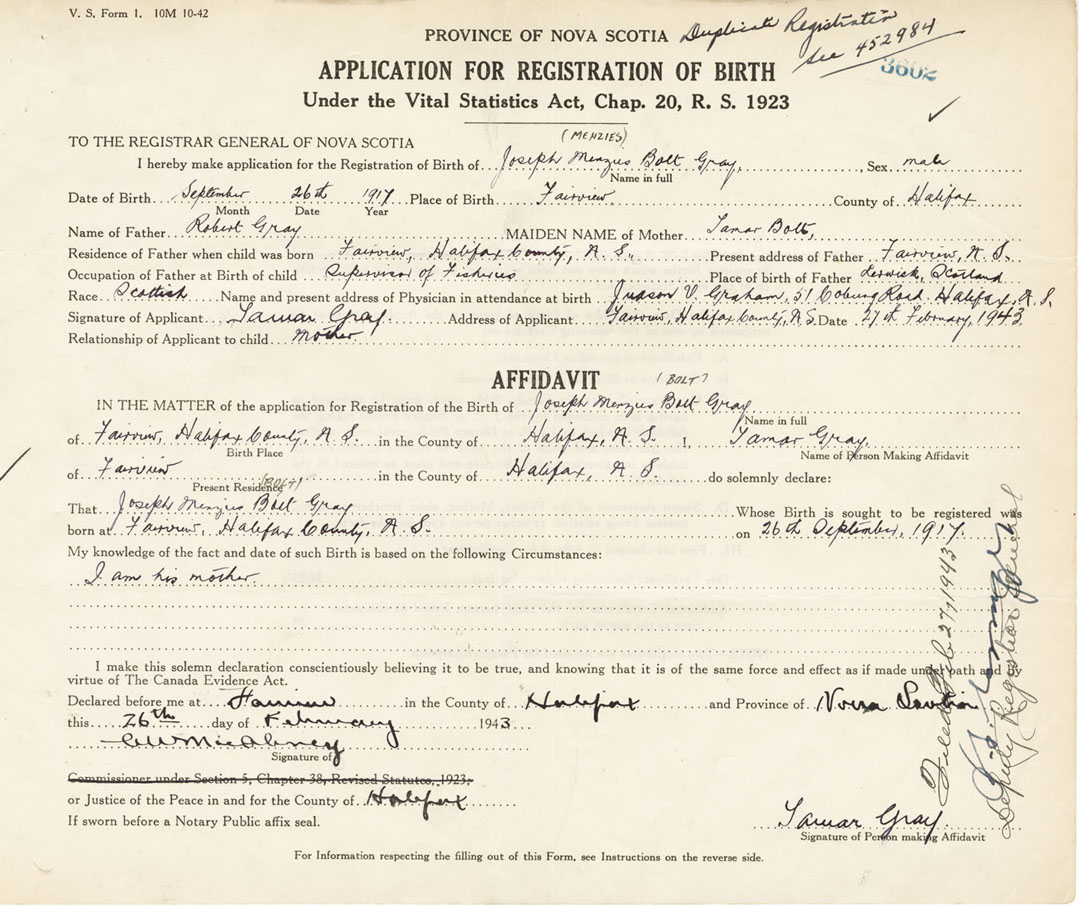 V. S. Form 1. 10M 10-42
PROVINCE OF NOVA SCOTIA Duplicate Registration
See 452984
3602
APPLICATION FOR REGISTRATION OF BIRTH
Under the Vital Statistics Act, Chap. 20, R. S. 1923
TO THE REGISTRAR GENERAL OF NOVA SCOTIA
(MENZIES)
I hereby make application for the Registration of Birth of Joseph Menzies Bolt Gray, Sex male
Name in full
Date of Birth September 26th 1917 Place of Birth Fairview, County of Halifax
Month Date Year
Name of Father Robert Gray MAIDEN NAME of Mother Tamar Bolt,
Residence of Father when child was born Fairview, Halifax County, N. S., Present address of Father Fairview, N. S.
Occupation of Father at Birth of child Supervisor of Fisheries Place of birth of Father Lerwick, Scotland
Race Scottish Name and present address of Physician in attendance at birth Judson V. Graham, 51 Coburg Road, Halifax, N. S.
Signature of Applicant Tamar Gray. Address of Applicant Fairview, Halifax County, N.S. Date 27th February, 1943
Relationship of Applicant to child Mother.
AFFIDAVIT
(BOLT?)
IN THE MATTER of the application for Registration of the Birth of Joseph Menzies Bolt Gray
Name in full
of Fairview, Halifax County, N. S. in the County of Halifax, N. S. I, Tamar Gray,
Birth Place Name of Person Making Affidavit
of Fairview in the County of Halifax, N. S. do solemnly declare:
Present Residence
(BOLT)
That Joseph Menzies Bolt Gray Whose Birth is sought to be registered was
born at Fairview, Halifax County, N. S. on 26th September, 1917.
My knowledge of the fact and date of such Birth is based on the following Circumstances:
I am his mother.
I make this solemn declaration conscientiously believing it to be true, and knowing that it is of the same force and effect as if made under oath and by
virtue of The Canada Evidence Act.
Declared before me at Fairview in the County of Halifax and Province of Nova Scotia
this 26th day of February 1943
Signature of
Commissioner under Section 5, Chapter 38, Revised Statutes, 1923,
or Justice of the Peace in and for the County of Halifax
If sworn before a Notary Public affix seal.
Tamar Gray.
Signature of Person making Affidavit
For Information respecting the filling out of this Form, see Instructions on the reverse side.
Filed Feb 27, 1943
Deputy Registrar General